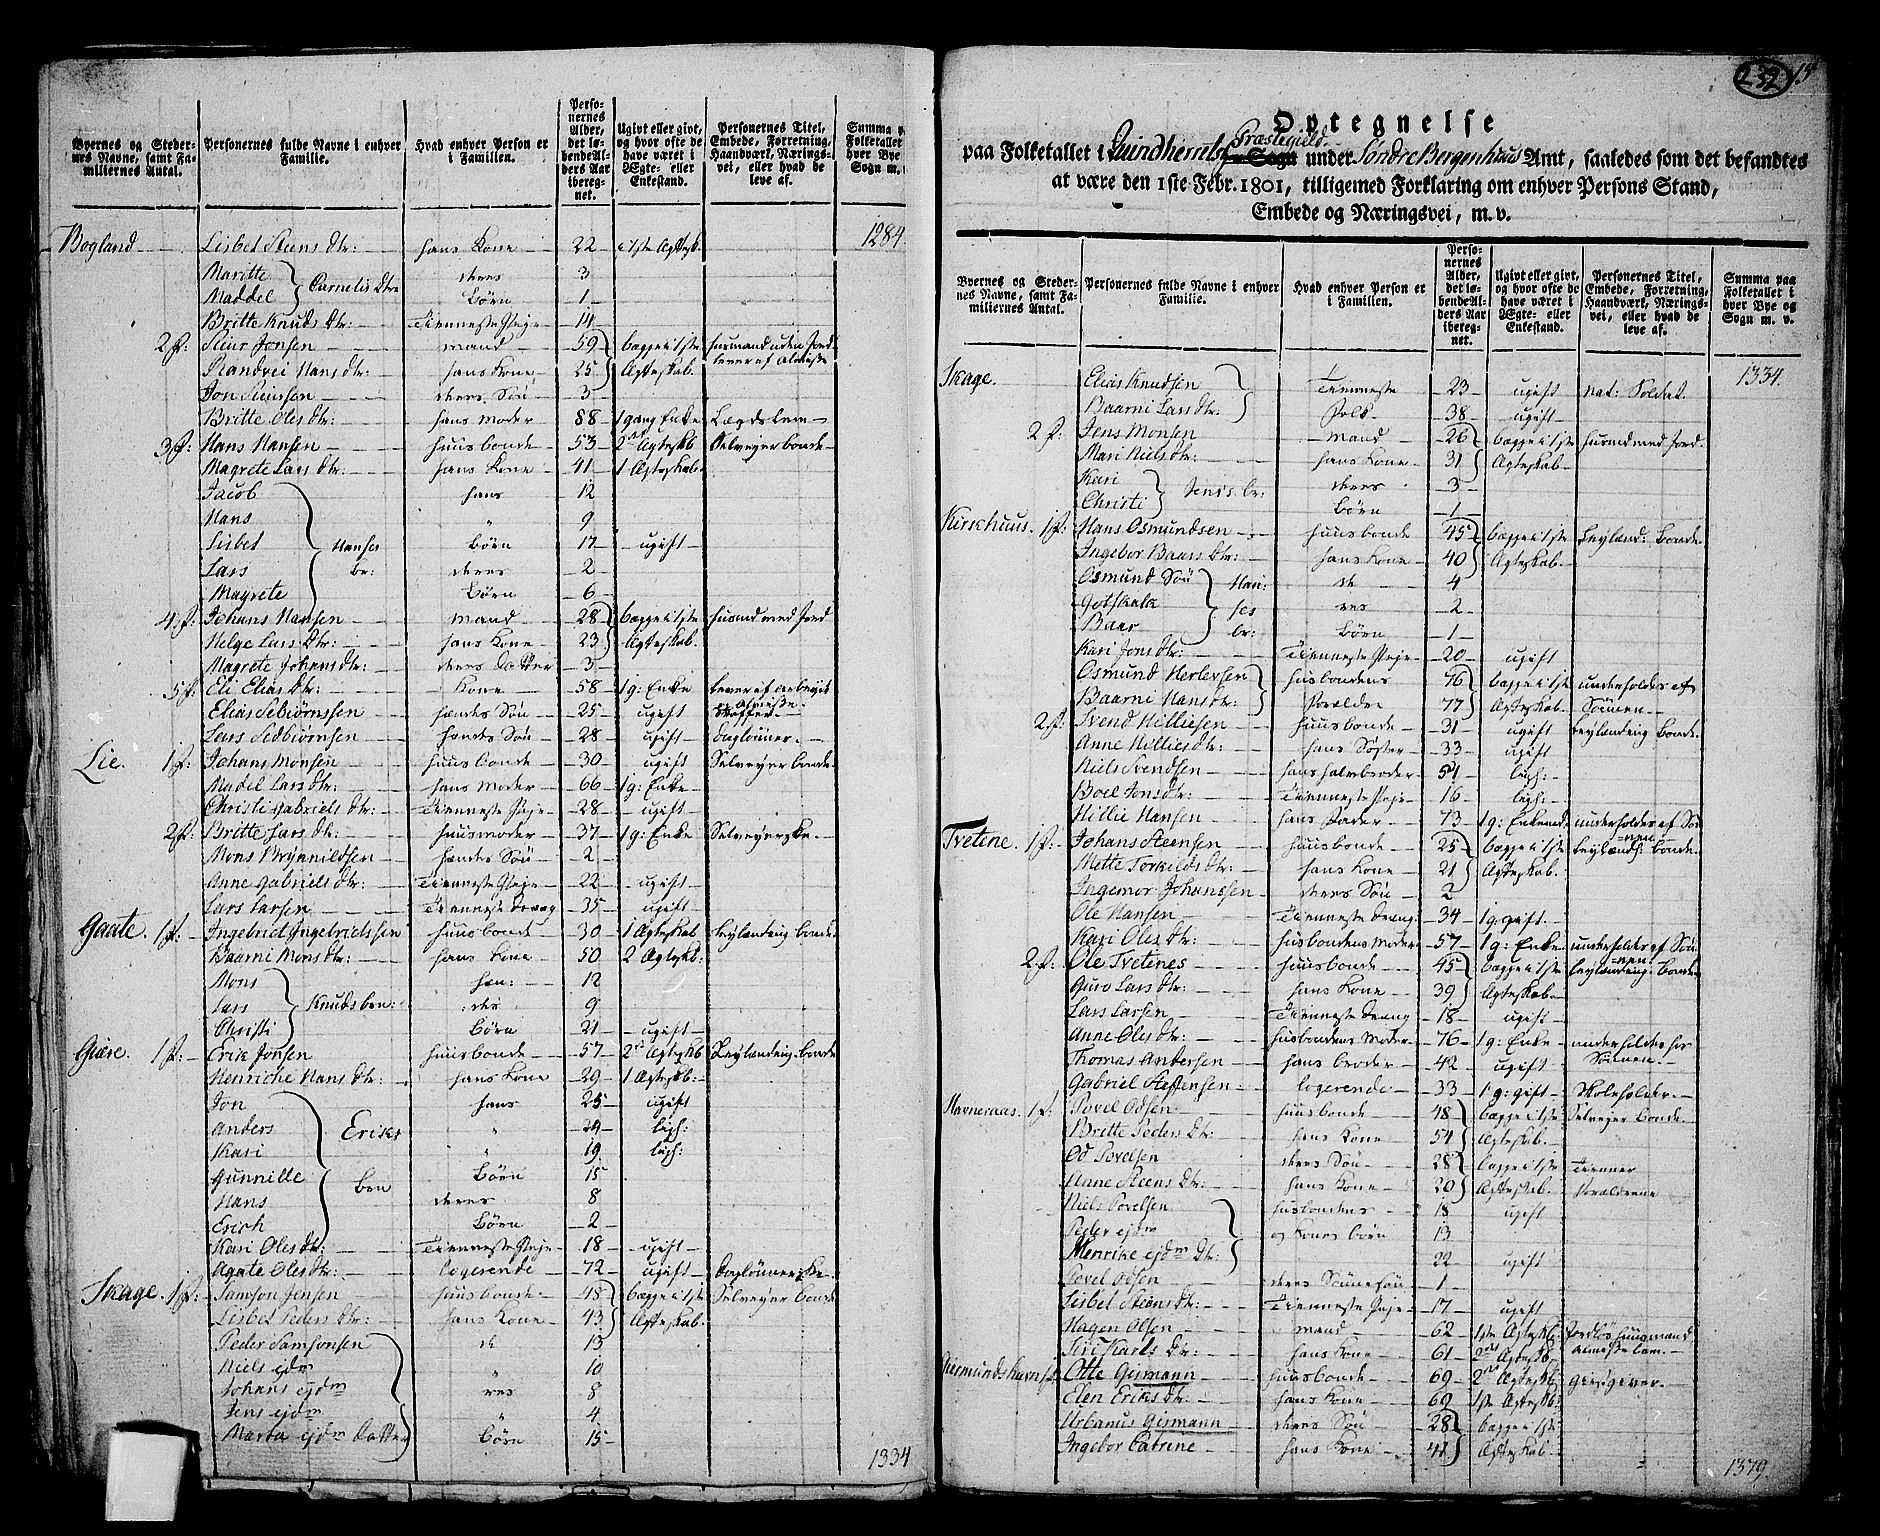 Byernes og Steder-
nes Navne, samt Fa-
miliernes Antal.
Personernes fulde Navne i enhver
Familie.
Hvad enhver Person er
i Familien.
Perso-
nernes
Alder,
det lø-
bende Al-
ders Aar
ibereg-
net.
Ugivt eller givt,
og hvor ofte de
have været i
Ægte- eller
Enkestand.
Personernes Titel,
Embede, Forretning,
Haandværk, Nærings-
vei, eller hvad de
leve af.
Summa
Folketallet
hver Bye
Sogn m.
Bogland Lisbet Steens Dtr: hans Kone 22 1ste Ægtesk. 1284
Maritte deres 3
Cornelis Dtre
Maddel Børn 1
Britte Knuds Dtr: Tienneste Pige 14
2 f: Siur Jonsen mand 59 begge i 1ste husmand uden Jord
Randvei Hans Dtr: hans Kone 25 Ægteskab. lever af Almisse
Jon Siursen deres Søn 3
Britte Oles Dtr: hans Moder 88 1 gang Enke Lægdslem
3 f: Hans Hansen huusbonde 53 2det Ægteskb Selveyer bonde
Magrete Lars Dtr: hans Kone 41 1 Ægteskab.
Jacob hans 12
Hans " 9
Lisbet Hanses Børn 17 ugift
Lars br: deres 2
Magrete Børn 6
4 f: Johans Hansen mand 28 begge i 1ste husmd med Jord
Helge Lars Dtr: hans Kone 23 Ægteskab.
Magrete Johans Dtr: deres Datter 3
5 f: Eli Elias Dtr: Kone 58 1 g: Enke lever af arbeyde
Almisse.
Elias Sebiørnssen hendes Søn 25 ugift
Lars Sedbiørnsen hendes Søn 28 ugift daglønner.
Lie. 1 f: Johans Monsen huusbonde 30 ugift Selveyer bonde
Madel Lars Dtr: hans Moder 66 1 g: Enke
Christi Gabriels Dtr: Tienneste Pige 28 ugift
2 f: Britte Lars Dtr: huusmoder 37 1 g: Enke Selveyerske.
Mons Brynnildsen hendes Søn 2
Anne Gabriels Dtr: Tienneste Pige 22 ugift
Lars Larsen Tienneste Dreng 35 ugift
Gaate. 1 f: Ingebrict Ingebrictssen huusbonde 30 1 Ægteskab Leylænding bonde
Baarni Mons Dtr: hans Kone 50 2 Ægteskb:
Mons hen: 12
Lars Knuds ben: :des 9
Christi Børn 21 ugift
Giære. 1 f: Erik Jonsen huusbonde 57 2det Ægteskb Leylænding bonde
Henriche Hans Dtr: hans Kone 29 1 Ægteskb:
Jon hans 25 ugift
Anders Eriks " 29 ligh:
Kari " 19 ligh:
Gunnille Børn 15
Hans Ben deres 8
Erich Børn 2
Kari Oles Dtr: Tienneste Pige 18 ugift
Agate Oles Dtr: logerende 72 ugift Daglønnerske
Skage. 1 f: Samson Jensen huusbonde 48 begge i 1ste Selveyer bonde
Lisbet Peders Dtr: hans Kone 43 Ægteskab.
Peder Samsonsen de 13
Niels ejdm " 10
Johans ejdm res 8
Jens ejdm 4
Marta ejdm Datter Børn 15
1334
232 15
Optegnelse
paa Folketallet i Quindherrets Præstegield Sogn under Søndre Bergenhuus Amt, saaledes som det befandtes
at være den 1ste Febr. 1801, tilligemed Forklaring om enhver Persons Stand,
Embede og Næringsvei, m. v.
Byernes og Steder-
nes Navne, samt Fa-
miliernes Antal.
Personernes fulde Navne i enhver
Familie.
Hvad enhver Person er
i Familien.
Perso-
nernes
Alder,
det lø-
bende Al-
ders Aar
ibereg-
net.
Ugivt eller givt,
og hvor ofte de
have været i
Ægte- eller
Enkestand.
Personernes Titel,
Embede, Forretning,
Haandværk, Nærings-
vei, eller hvad de
leve af.
Summa paa
Folketallet i
hver Bye og
Sogn m. v.
Skage. Elias Knudsen Tienneste 23 ugift nat: Soldat. 1334.
Baarni Lars Dtr: Folk 38 ugift
2 f: Jens Monsen mand 26 begge i 1ste husmd med Jord.
Mari Niels Dtr: hans Kone 31 Ægteskab
Kari deres 3
Jenses br:
Christi Børn 1
Kirschuus. 1 f: Hans Osmundsen huusbonde 45 begge i 1ste Leylænd: bonde
Ingebor Baars Dtr: hans Kone 40 Ægteskab.
Osmund Søn Han: de 4
Gotskalk ses res 2
Baar br: Børn 1
Kari Jons Dtr: Tienneste Pige 20 ugift
Osmund Herlevsen husbondens 76 begge i 1ste underholdes af
Baarni Hans Dtr: Forældre 77 Ægteskab. Sønnen
2 f: Svend Hilliesen huusbonde 31 ugift Leylænding bonde.
Anne Hillies Dtr: hans Søster 33 ugift
Niels Svendsen hans halvbroder 54 ligh:
Boel Jons Dtr: Tienneste Pige 16 ligh:
Hillie Hansen hans Fader 73 1 g: Enkemd underholdes af Søn
nen
Tvetene. 1 f: Johans Steensen huusbonde 25 begge i 1ste Leylændh: bonde.
Mette Torkilds Dtr: hans Kone 21 Ægteskab.
Ingemor Johanssen deres Søn 2
Ole Hansen Tienneste Dreng 34 1 g: gift.
Kari Oles Dtr: husbondens Moder 57 1 g: Enke underholdes af Søn
nen
2 f: Ole Tvetenes huusbonde 45 begge i 1ste Leylænding: bonde
Guro Lars Dtr: hans Kone 39 Ægteskab
Lars Larsen Tienneste Dreng 18 ugift
Anne Oles Dtr: husbondens Moder 76 1 g: Enke underholdes hos
Thomas Andersen hans broder 42 ugift Sønnen
Gabriel Steffensen logerende 33 1 g: gift Skoleholder.
Havneraas. 1 f: Povel Odsen huusbonde 48 begge i 1ste Selveyer bonde.
Britte Peders Dtr: hans Kone 54 Ægteskab.
Od Povelsen deres Søn 28 begge i 1ste Tienner
Anne Steens Dtr: hans Kone 20 Ægteskab. Forældrene
Niels Povelsen husbondens 18 ugift
Peder ejdm og Kones børn 13
Henrike ejdm Dtr: 22 ugift
Povel Odsen deres Sønnesøn 1
Lisbet Steens Dtr: Tienneste Pige 17 ugift
Hagen Olsen mand 62 1ste Ægteskb. Jordløs huusmand
Siri Karls Dtr: hans Kone 61 2det Ægteskb. Almisse lem.
Giermundshavn 1 f: Otte Geismann huusbonde 69 2det Ægteskb giestgiver.
Elen Eriks Dtr: hans Kone 69 1ste Ægteskb:
Urbanus Gismann deres Søn 28 begge i 1ste
Ingebor Catrine hans Kone 41 Ægteskab.
1379